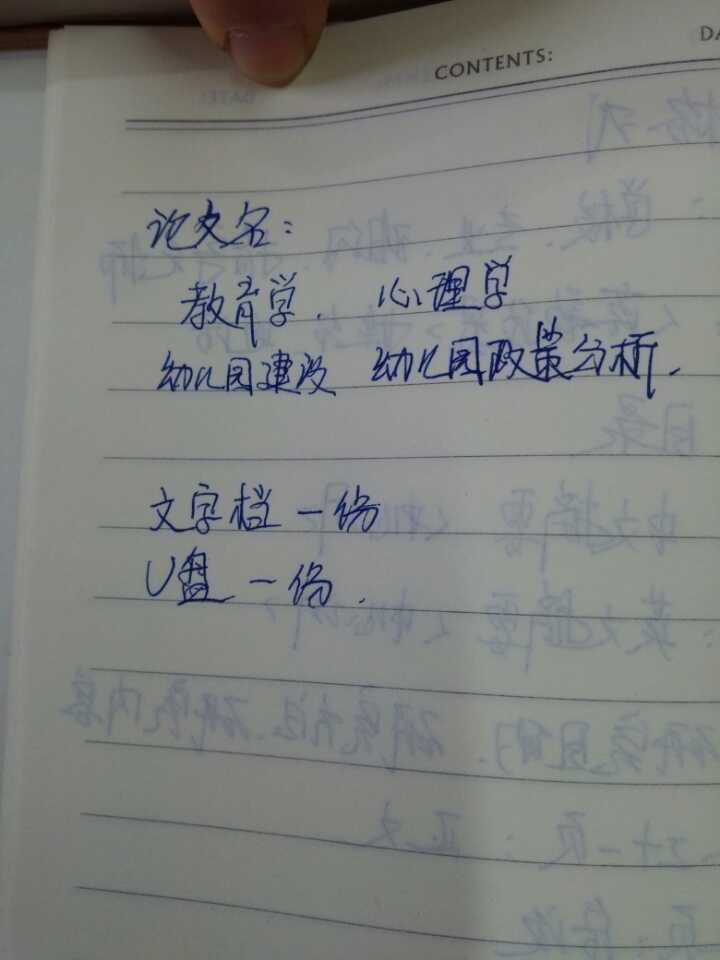 CONTENTS:
论文名：
教育学. 心理学
幼儿园建设 幼儿园政策分析.
文字档一份
U盘一份.